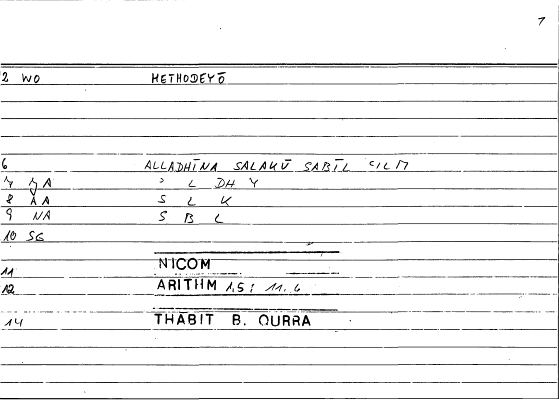 7
2 WO METHODEYŌ
6 ALLADHĪNA SALAKŪ SABĪL ʿILM
7 JA ʾ L DH Y
8 AA S L K
9 NA S B L
10 SG
11 NICOM
12 ARITHM 1,5 : 11.6
14 THABIT B. QURRA